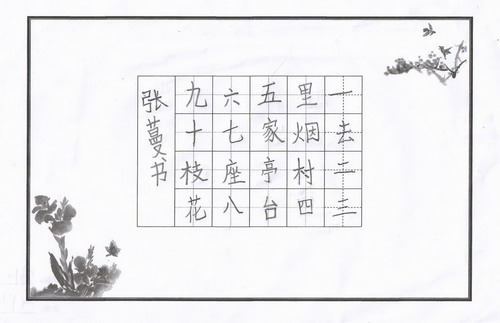 一去二三
里烟村四
五家亭台
六七座八
九十枝花
张蔓书